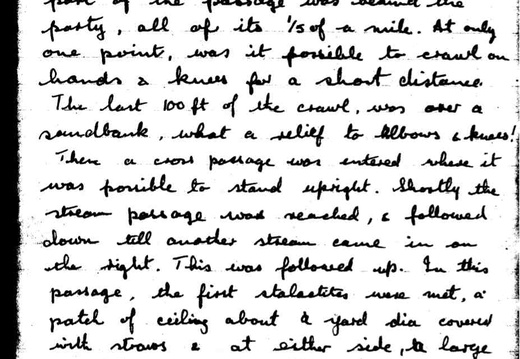 part of the passage was behind the
party, all of its 1/5 of a mile. At only
one point, was it possible to crawl on
hands & knees for a short distance.
The last 100 ft of the crawl, was over a
sandbank, what a relief to elbows & knees!
Then a cross passage was entered where it
was possible to stand upright. Shortly the
stream passage was reached, & followed
down till another stream came in on
the right. This was followed up. In this
passage, the first stalactites were met, a
patch of ceiling about a yard dia covered
with straws & at either side, large